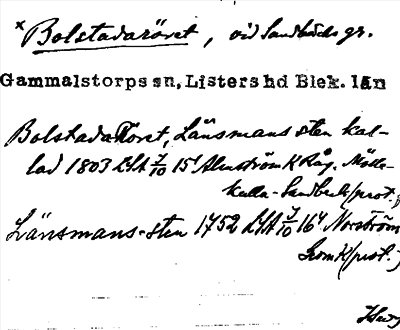 x Bolstadaröret, vid Sandbäcks gr.
Gammalstorps sn, Listers hd Blek. län
Bolstadaröret, Länsmans sten kal-
lad 1803 LSA 7/10 15¹ Almström K Råg. Mölle-
kulla - Sandbeck (prot.)
Länsmans-sten 1752 LSA 7/10 16⁴ Norström
K (prot.)